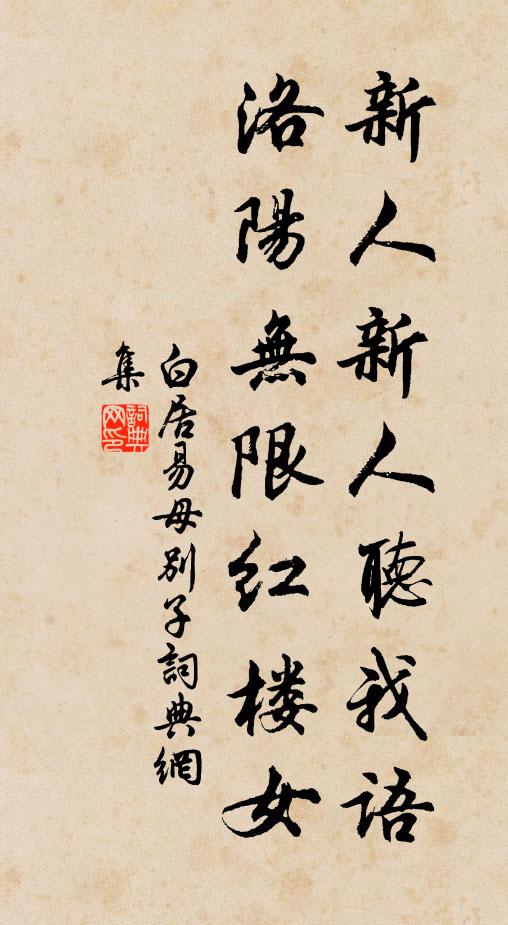 新人新人聽我語
洛陽無限红楼女
白居易母別子詞典網
集
詞典
网印